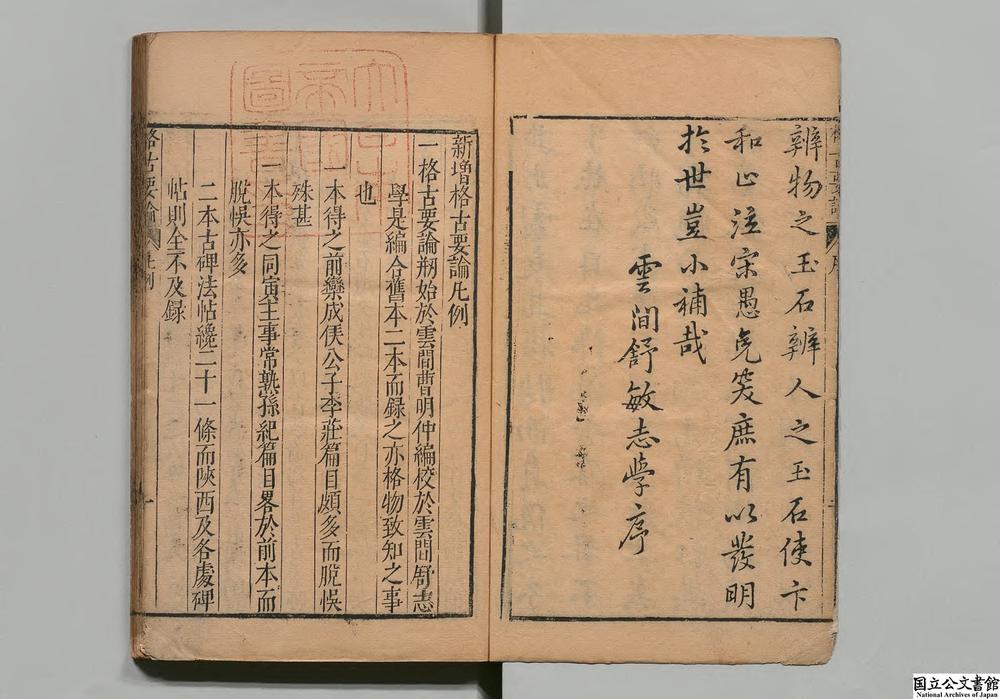 辨物之玉石辨人之玉石使卞
和山泣宋愚免笑庶有以發明
於世豈小補哉
雲間舒敏志學序
新增格古要論凡例
一格古要論刱始於雲間曹明仲編校於雲間舒志
學是編合舊本二本而録之亦格物致知之事
也
一本得之前欒成侯公子李莊篇目頗多而脫悞
殊甚
一本得之同寅主事常熟孫紀篇目畧於前本而
脫悞亦多
二本古碑法帖纔二十一條而陝西及各處碑
帖則全不及録
格古要論 凡例
国立公文書館
National Archives of Japan